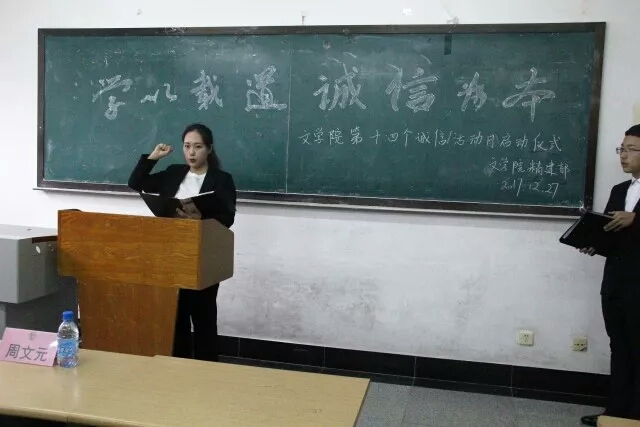 学以载道 诚信为本
文学院第十四个诚信活动日启动仪式
文学院精建部
2017.12.27
周文元